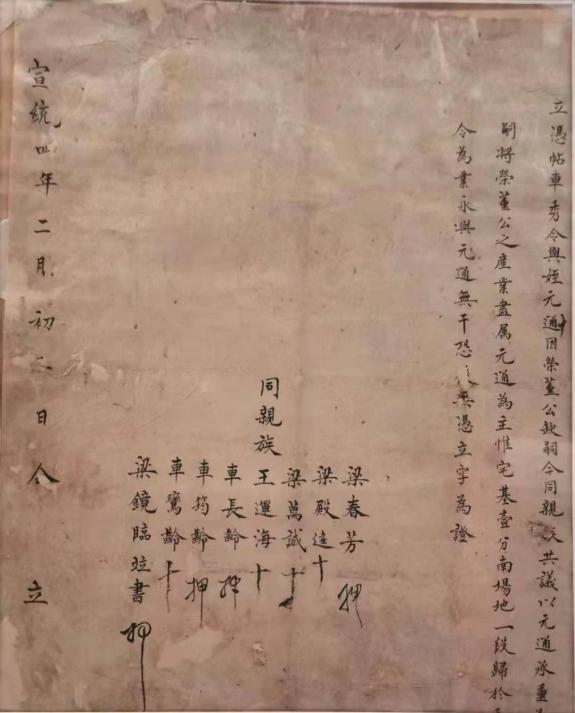 立憑帖車秀令與姪元通因榮董公缺嗣今同親族共議以元通承董
嗣將榮董公之產業盡属元通為主惟宅基壹分南場地一段歸於
令為業永與元通無干恐憑立字為證
梁春芳 押
梁殿 十
梁萬誠 十
同親族 王運海 十
車長齡 押
車筠齡 押
車鸞齡 十
梁鏡臨並書 押
宣統四年二月初二日 令 立